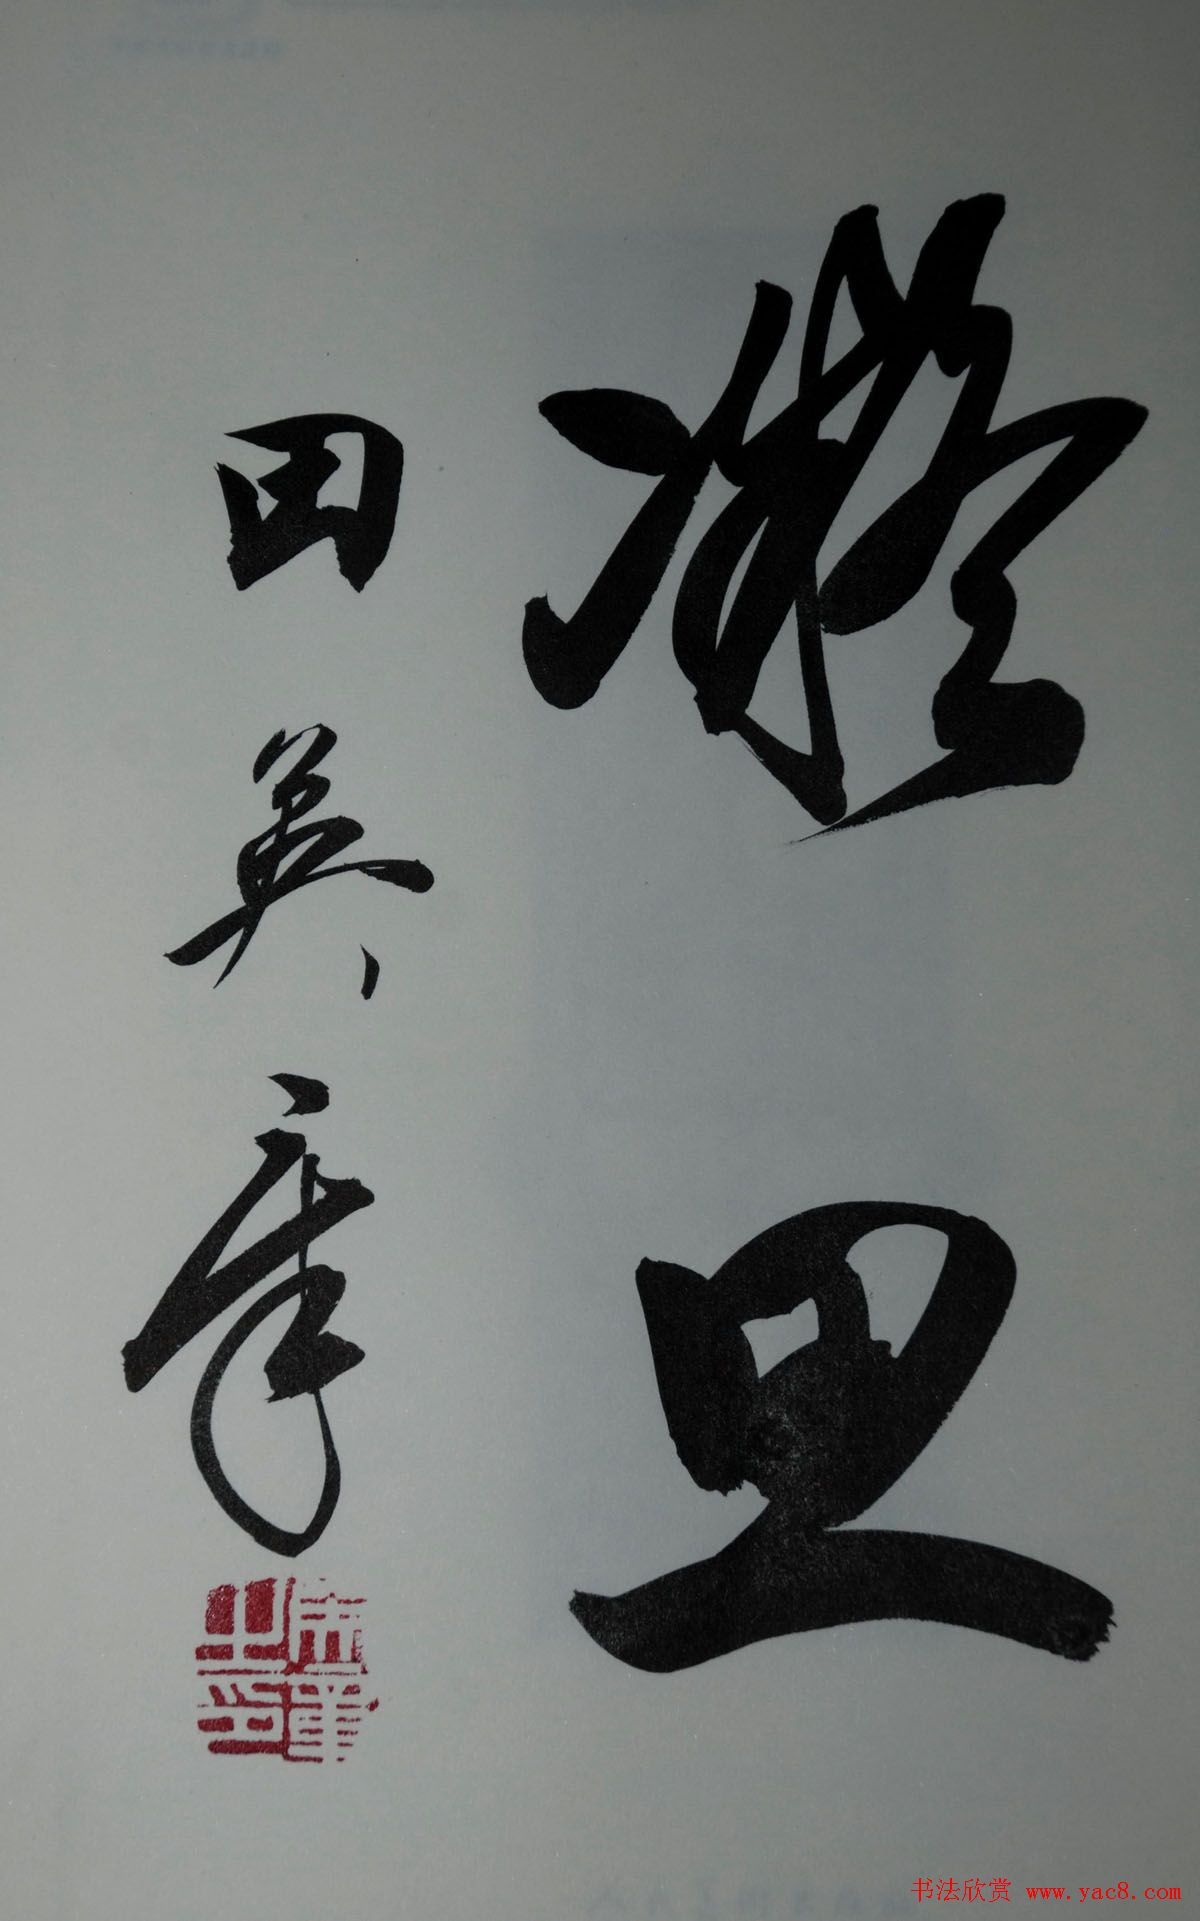 凝旦
田英章
书法欣赏 www.yac8.com